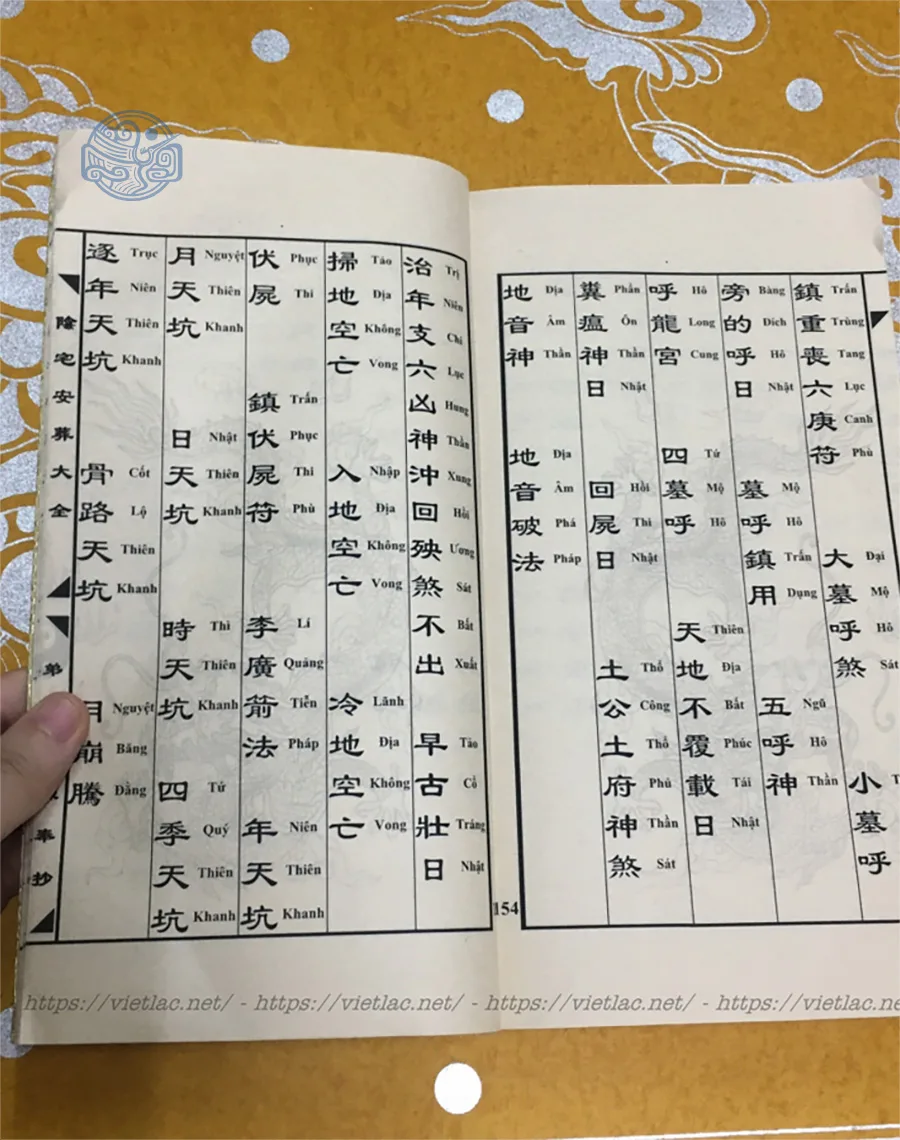 鎮重喪六庚符
Trấn Trùng Tang Lục Canh Phù
大墓呼煞
Đại Mộ Hô Sát
小墓呼
旁的呼日
Bàng Đích Hô Nhật
墓呼鎮用
Mộ Hô Trấn Dụng
五呼神
Ngũ Hô Thần
呼龍宮
Hô Long Cung
四墓呼
Tứ Mộ Hô
天地不覆載日
Thiên Địa Bất Phúc Tái Nhật
糞瘟神日
Phẩn Ôn Thần Nhật
回屍日
Hồi Thi Nhật
土公土府神煞
Thổ Công Thổ Phủ Thần Sát
地音神
Địa Âm Thần
地音破法
Địa Âm Phá Pháp
154
治年支六凶神沖回殃煞不出
Trị Niên Chi Lục Hung Thần Xung Hồi Ương Sát Bất Xuất
早古壯日
Tảo Cổ Tráng Nhật
掃地空亡
Táo Địa Không Vong
入地空亡
Nhập Địa Không Vong
冷地空亡
Lãnh Địa Không Vong
伏屍
Phục Thi
鎮伏屍符
Trấn Phục Thi Phù
李廣箭法
Lí Quảng Tiễn Pháp
年天坑
Niên Thiên Khanh
月天坑
Nguyệt Thiên Khanh
日天坑
Nhật Thiên Khanh
時天坑
Thì Thiên Khanh
四季天坑
Tứ Quý Thiên Khanh
逐年天坑
Trục Niên Thiên Khanh
骨路天坑
Cốt Lộ Thiên Khanh
月崩騰
Nguyệt Băng Đằng
陰宅安葬大全
弟
奉抄
https://vietlac.net/ - https://vietlac.net/ - https://vietlac.net/ - https://vietlac.net/